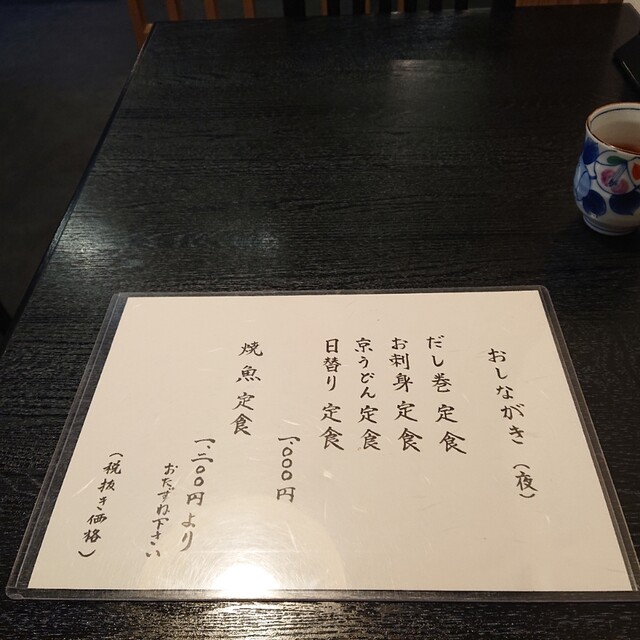 おしながき（夜）
だし巻定食
お刺身定食
京うどん定食
日替り定食
一、〇〇〇円
焼魚定食
一、二〇〇円より
おたずね下さい
（税抜き価格）